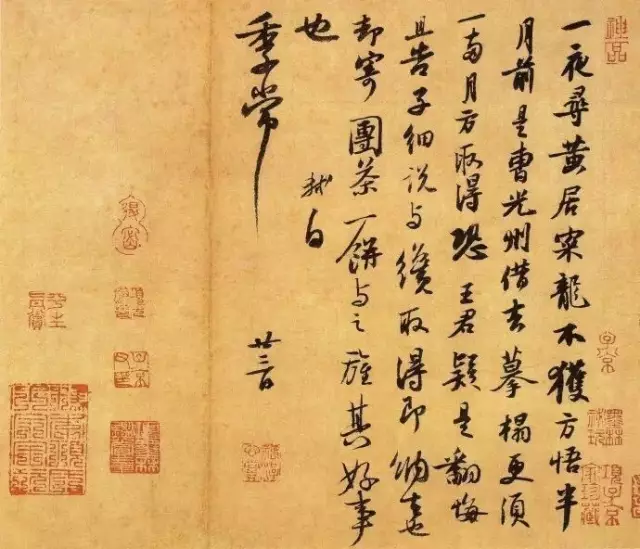 神品
一夜尋黃居寀龍不獲方悟半
月前是曹光州借去摹搨更須
一兩月方取得恐王君疑是翻悔
且告子細說與纔取得即納去也
却寄團茶一餅與之旌其好事
也
軾白
季常
廿三日